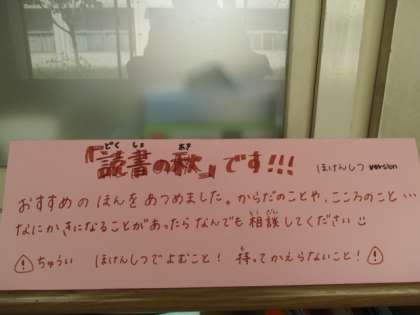 「読書の秋」です!!! ほけんしつ version
どくしょ あき
おすすめの ほんを あつめました。からだのことや、こころのこと…
なにかきになることがあったら なんでも 相談 してください
そうだん
ちゅうい ほけんしつでよむこと! 持ってかえらないこと!
も